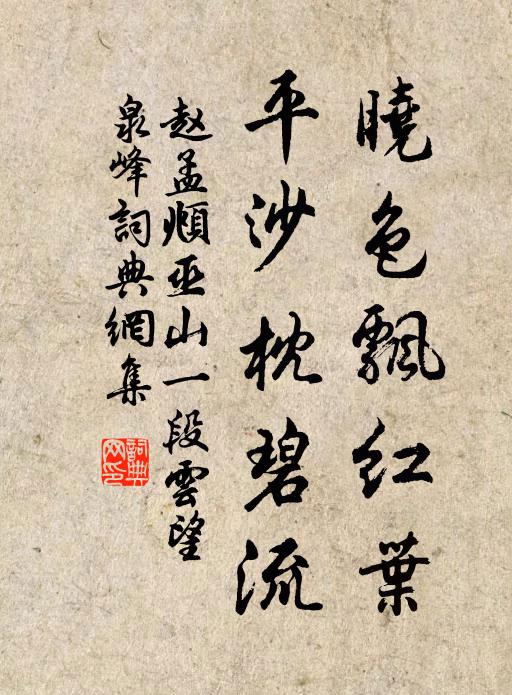 曉色飄紅葉
平沙枕碧流
赵孟頫巫山一段雲望
泉峰詞典網集
詞典网印